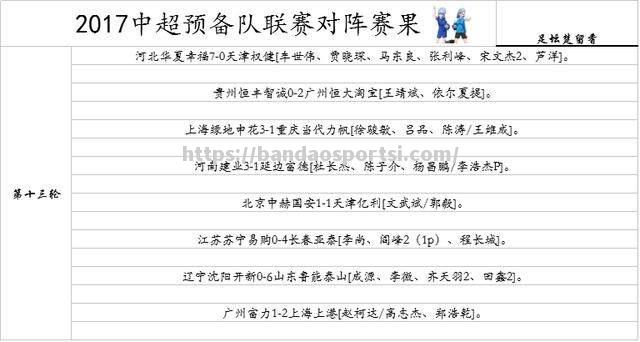 2017中超预备队联赛对阵赛果
足坛楚留香
河北华夏幸福7-0天津权健[车世伟、贾晓琛、马东良、张利峰、宋文杰2、芦洋]。
贵州恒丰智诚0-2广州恒大淘宝[王靖斌、依尔夏提]。
上海绿地申花3-1重庆当代力帆[徐骏敏、吕品、陈涛/王维成]。
https://bandaosportsi.com/
河南建业3-1延边富德[杜长杰、陈子介、杨昌鹏/李浩杰P]。
第十三轮
北京中赫国安1-1天津亿利[文武斌/郭毅]。
江苏苏宁易购0-4长春亚泰[李尚、阎峰2（1p）、程长城]。
辽宁沈阳开新0-6山东鲁能泰山[成源、李微、齐天羽2、田鑫2]。
广州富力1-2上海上港[赵柯达/高志杰、郑浩乾]。